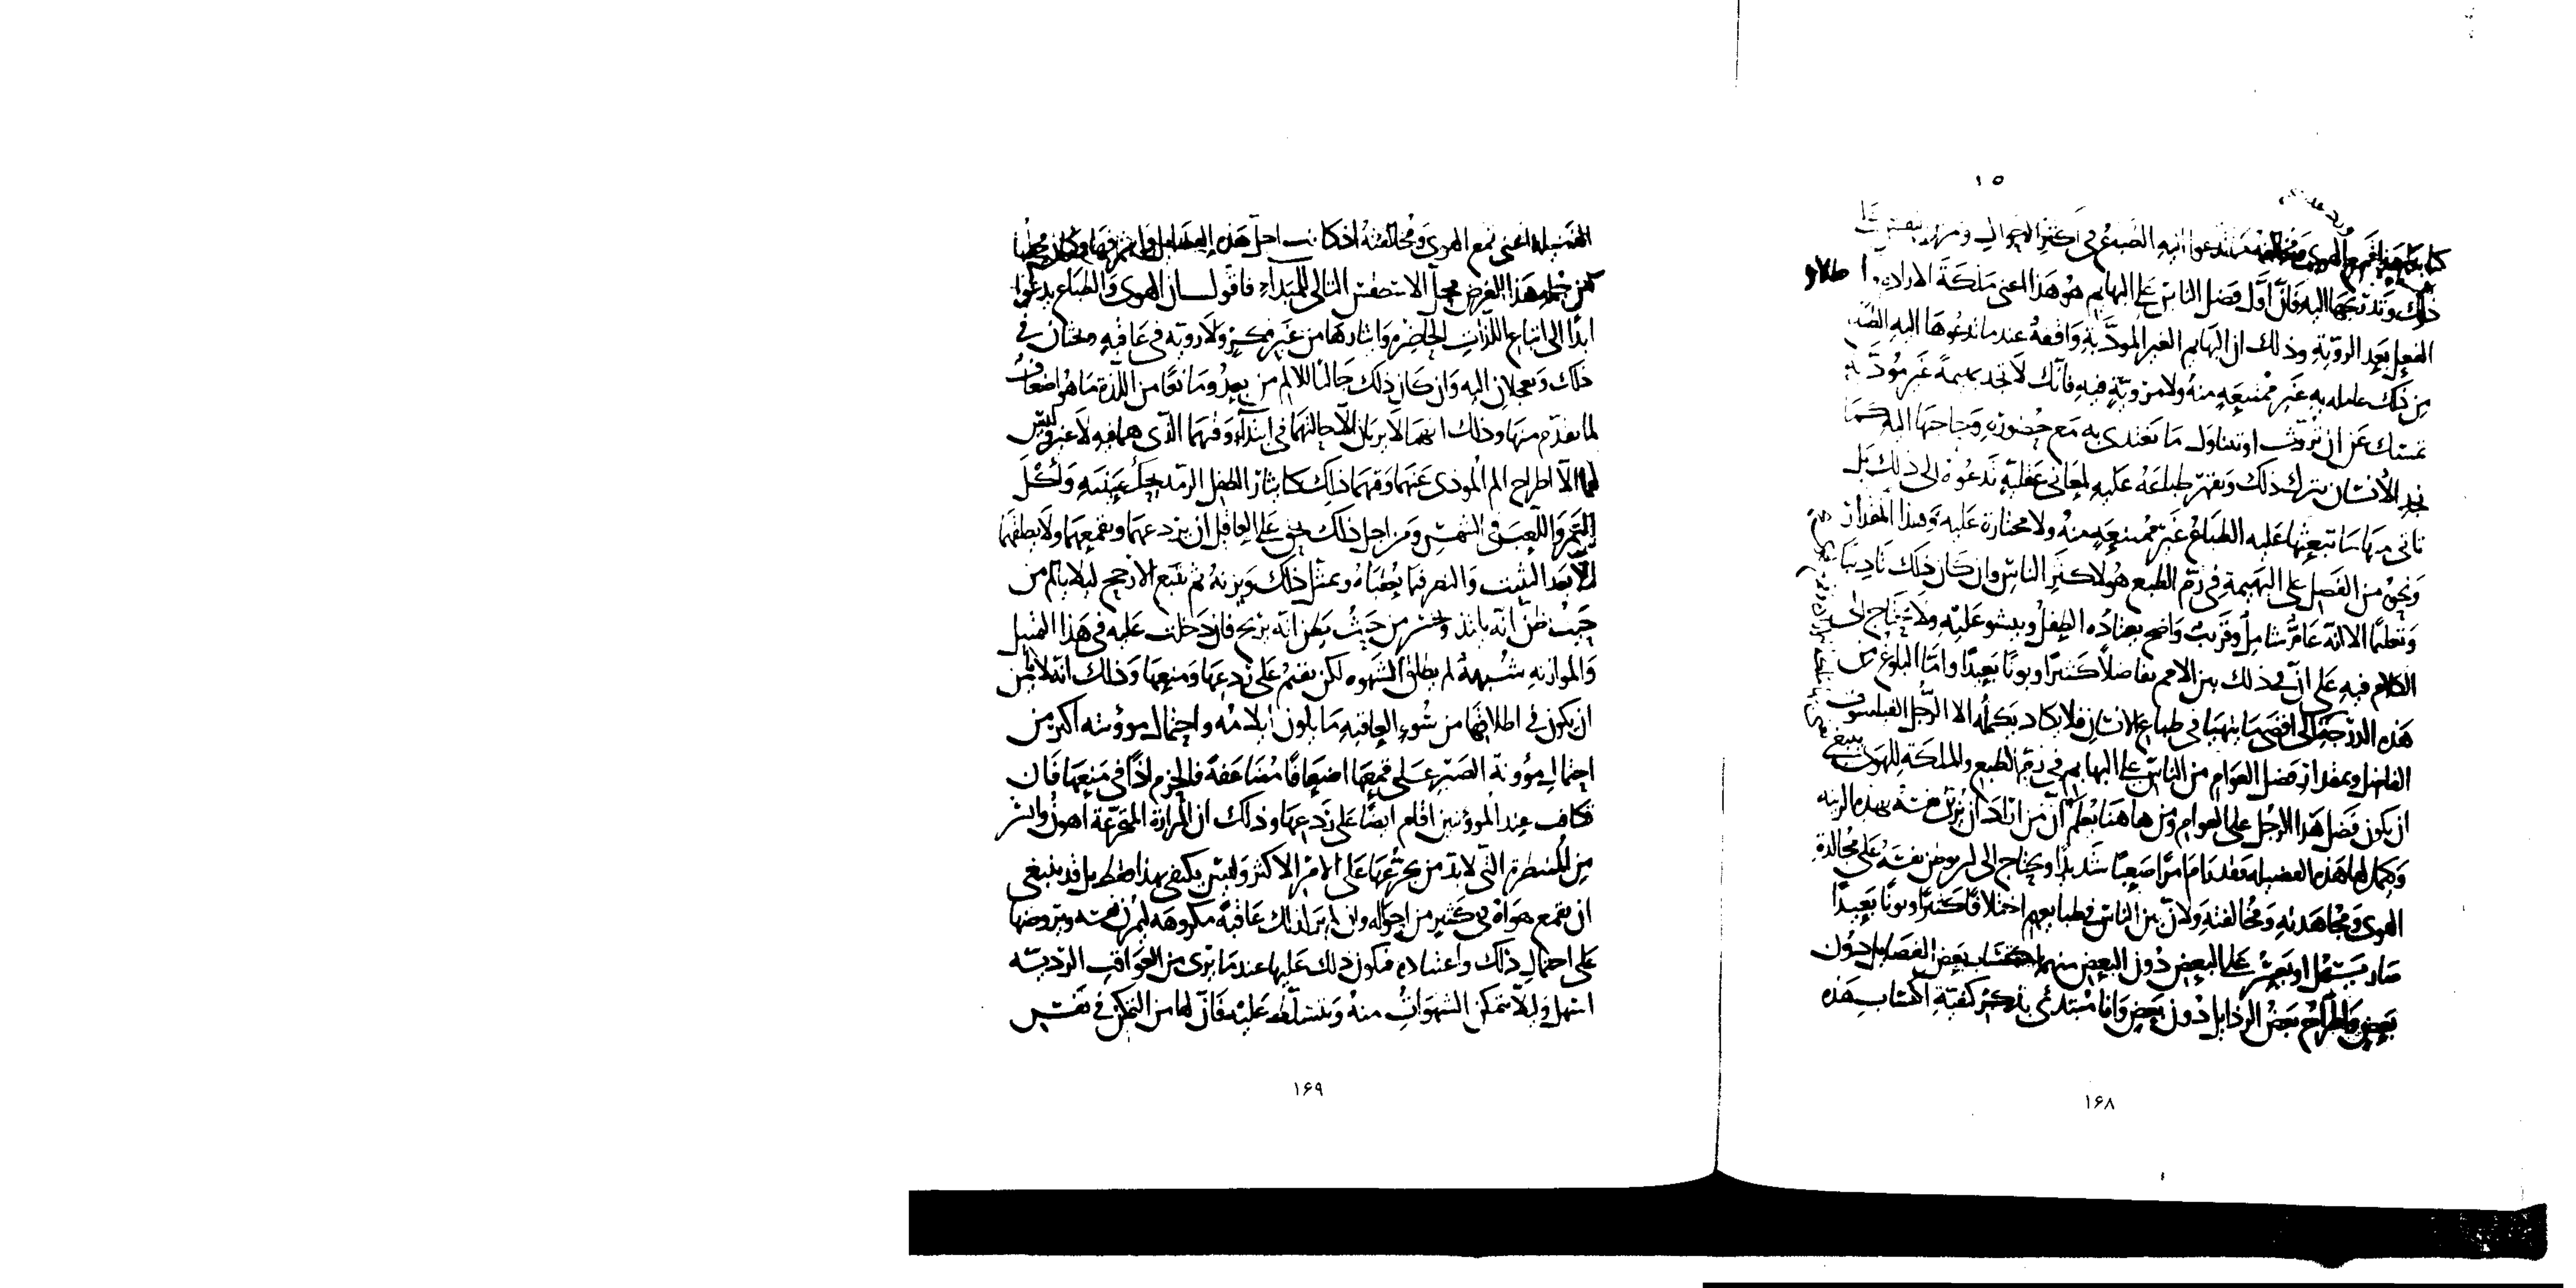 ١٥
كتابنا هذا قمع الهوى ومخالفة ما يدعوا اليه الطباع في اكثر الاحوال وتمرين النفس على
ذلك وتدريجها اليه فان اول فضل الناس على البهايم هو هذا اعنى ملكة الارادة واطلاق
الفعل بعد الروية وذلك ان البهايم الغير المودبة واقفة عند ما تدعوها اليه الطباع
من ذلك عاملة به غير ممتنعة منه ولا مروية فيه فانك لا تجد بهيمة غير مودبة
تمسك عن ان تروث او تتناول ما تغتذى به مع حضوره وحاجتها اليه كما
تجد الانسان يترك ذلك ويقهر طباعه عليه لمعانى عقلية تدعوه الى ذلك بل
تاتى منها ما تبعثها عليه الطباع غير ممتنعة منه ولا مختارة عليه وهذا المقدار
ونحوه من الفضل على البهيمة في زم الطبع هو لاكثر الناس وان كان ذلك تاديبا
وتعليما الا انه عام شامل وقريب واضح يعتاده الطفل وينشو عليه ولا يحتاج الى
الكلام فيه على ان في ذلك بين الامم تفاضلا كثيرا وبونا بعيدا واما البلوغ من
هذه الدرجة الى اقصى ما يتهيا في طباع الانسان فلا يكاد يكمله الا الرجل الفيلسوف
الفاضل وبمقدار فضل العوام من الناس على البهايم في زم الطبع والملكة للهوى ينبغي
ان يكون فضل هذا الرجل على العوام ومن هاهنا يعلم ان من اراد ان يزين نفسه بهذه الزينة
ويكمل لها هذه الفضيلة فقد رام امرا صعبا شديدا ويحتاج الى ان يوطن نفسه على مجالدة
الهوى ومجاهدته ومخالفته ولان بين الناس في طبايعهم اختلافا كثيرا وبونا بعيدا
صار يسهل او يعسر على البعض دون البعض منهم اكتساب بعض الفضايل دون
بعض واطراح بعض الرذايل دون بعض وانا مبتدئ بذكر كيفية اكتساب هذه
١۶٨
الفضيلة اعنى قمع الهوى ومخالفته اذ كانت اجل هذه الفضايل واشرفها وكان محلها
من جملة هذا الغرض محل الاستطقس التالى للمبداء فاقول ان الهوى والطباع يدعوا
ابدا الى اتباع اللذات الحاضرة وايثارها من غير فكر ولا روية في عاقبة ويحثان في
ذلك ويعجلان اليه وان كان ذلك جالبا للالم من بعد ومانعا من اللذة ما هو اضعاف
لما تقدم منها وذلك انهما لا يريان الا حالتهما في ابتداء وقتهما الذى هما فيه لا غير وليس
لهما الا اطراح الم الموذى عنهما وقتهما ذلك كايثار الطفل الرمد حك عينيه واكل
التمر واللعب في الشمس ومن اجل ذلك يحق على العاقل ان يردعهما ويقمعهما ولا يطلقهما
الا بعد التثبت والنظر فيما يعقبانه ويمثل ذلك ويزنه ثم يتبع الارجح ليلا يالم من
حيث ظن انه يلتذ ويخسر من حيث يظن انه يربح فان دخلت عليه في هذا التمثيل
والموازنة شبهة لم يطلق الشهوة لكن يقيم على ردعها ومنعها وذلك انه لا يامن
ان يكون في اطلاقها من سوء العاقبة ما يكون ايلامه واحتمال موونته اكثر من
احتمال موونة الصبر على قمعها اضعافا مضاعفة فالحزم اذا في منعها فان
تكافت عنده الموونتين اقام ايضا على ردعها وذلك ان المرارة المتجرعة اهون وايسر
من المنتظرة التى لا بد من تجرعها على الامر الاكثر وليس يكتفى بهذا فقط بل قد ينبغى
ان يقمع هواه في كثير من احواله وان لم ير لذلك عاقبة مكروهة ليمرن نفسه ويروضها
على احتمال ذلك واعتياده فيكون ذلك عليها عند ما يرى من العواقب الردية
اسهل ولئلا تتمكن الشهوات منه وتتسلط عليه فان لها من التمكن في نفس
١۶٩